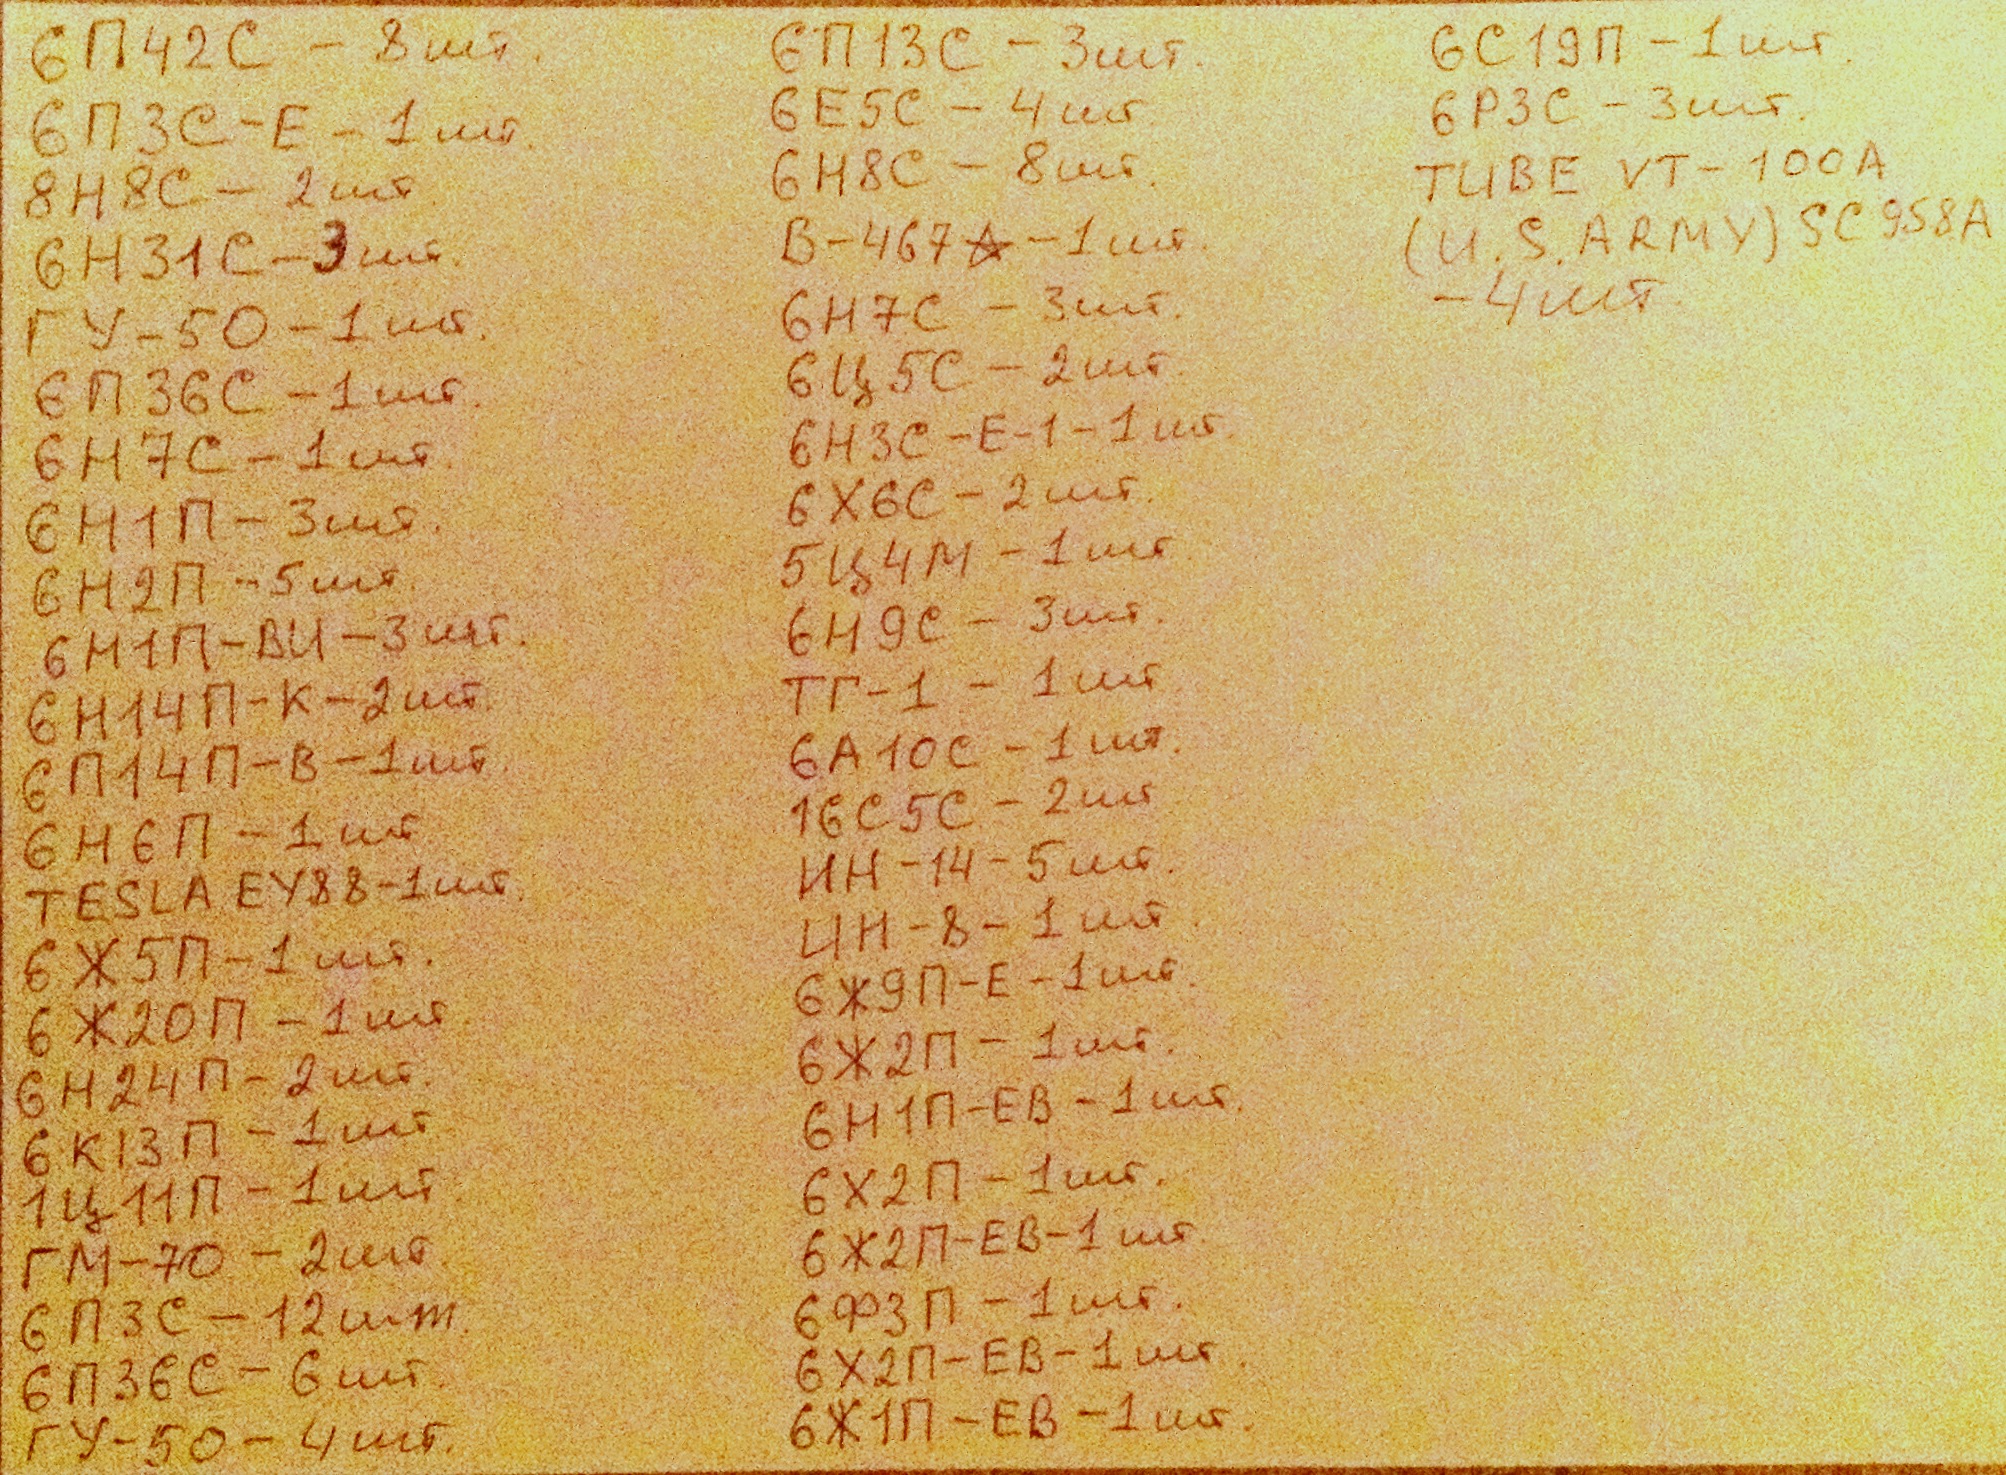 6П42С - 8шт.
6П3С-Е - 1шт.
8Н8С - 2шт.
6Н31С - 3шт.
ГУ-50 - 1шт.
6П36С - 1шт.
6Н7С - 1шт.
6Н1П - 3шт.
6Н2П - 5шт.
6Н1П-ВИ - 3шт.
6Н14П-К - 2шт.
6П14П-В - 1шт.
6Н6П - 1шт
TESLA EY88 - 1шт.
6Ж5П - 1шт.
6Ж20П - 1шт.
6Н24П - 2шт.
6К13П - 1шт
1Ц11П - 1шт
ГМ-70 - 2шт.
6П3С - 12шт.
6П36С - 6шт.
ГУ-50 - 4шт.
6П13С - 3шт.
6Е5С - 4шт.
6Н8С - 8шт.
В-467 - 1шт.
6Н7С - 3шт.
6Ц5С - 2шт.
6Н3С-Е-1 - 1шт.
6Х6С - 2шт.
5Ц4М - 1шт.
6Н9С - 3шт.
ТГ-1 - 1шт
6А10С - 1шт.
16С5С - 2шт
ИН-14 - 5шт.
ИН-8 - 1шт.
6Ж9П-Е - 1шт.
6Ж2П - 1шт.
6Н1П-ЕВ - 1шт.
6Х2П - 1шт.
6Ж2П-ЕВ - 1шт.
6Ф3П - 1шт.
6Х2П-ЕВ - 1шт.
6Ж1П-ЕВ - 1шт.
6С19П - 1шт.
6Р3С - 3шт.
TUBE VT-100A
(U.S.ARMY) SC958A
- 4шт.